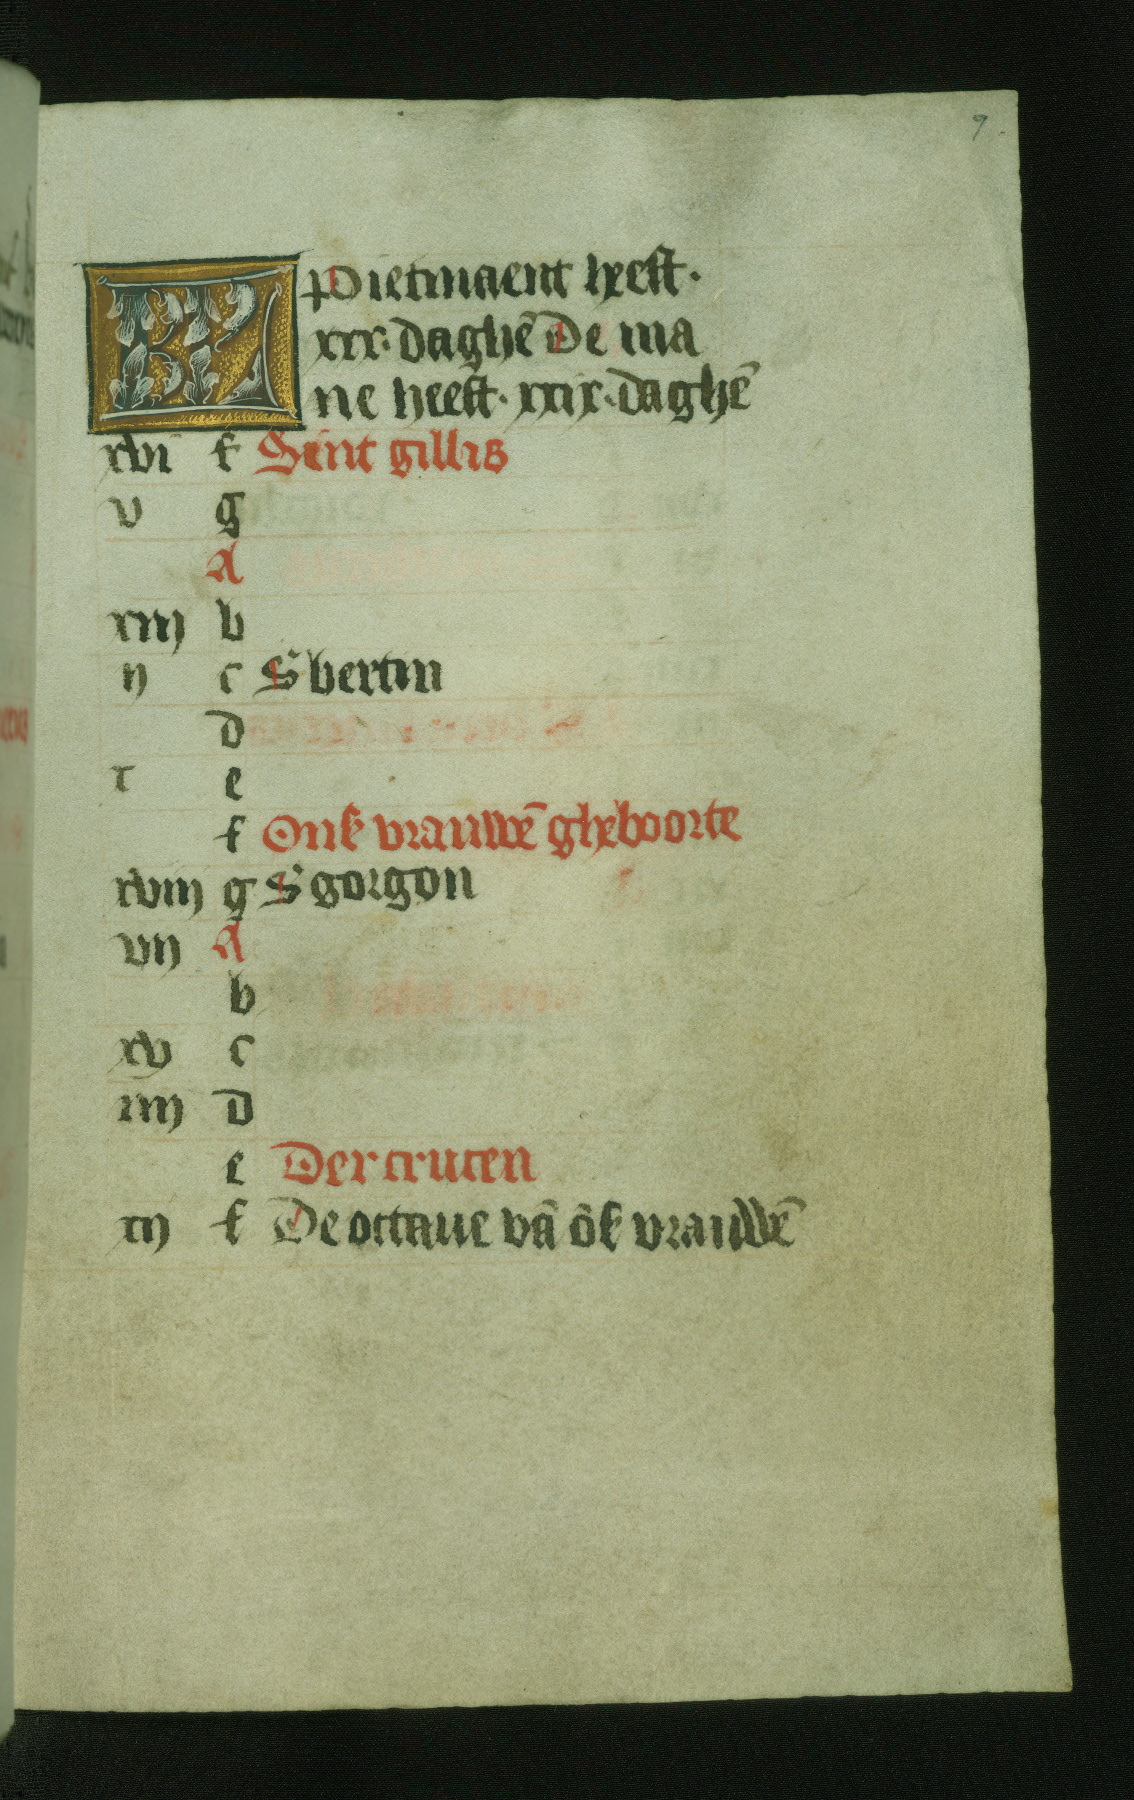 9
KL pietmaent heeft·
xxx· daghē De ma
ne heeft· xxix· daghē
xvi f Sint gillis
v g
A
xiij b
ij c S bertin
d
x e
f Onser vrauwē gheboorte
xviij g S gorgon
vij A
b
xv c
iiij d
e Der crucen
xij f De octaue vā ōser vrauwē